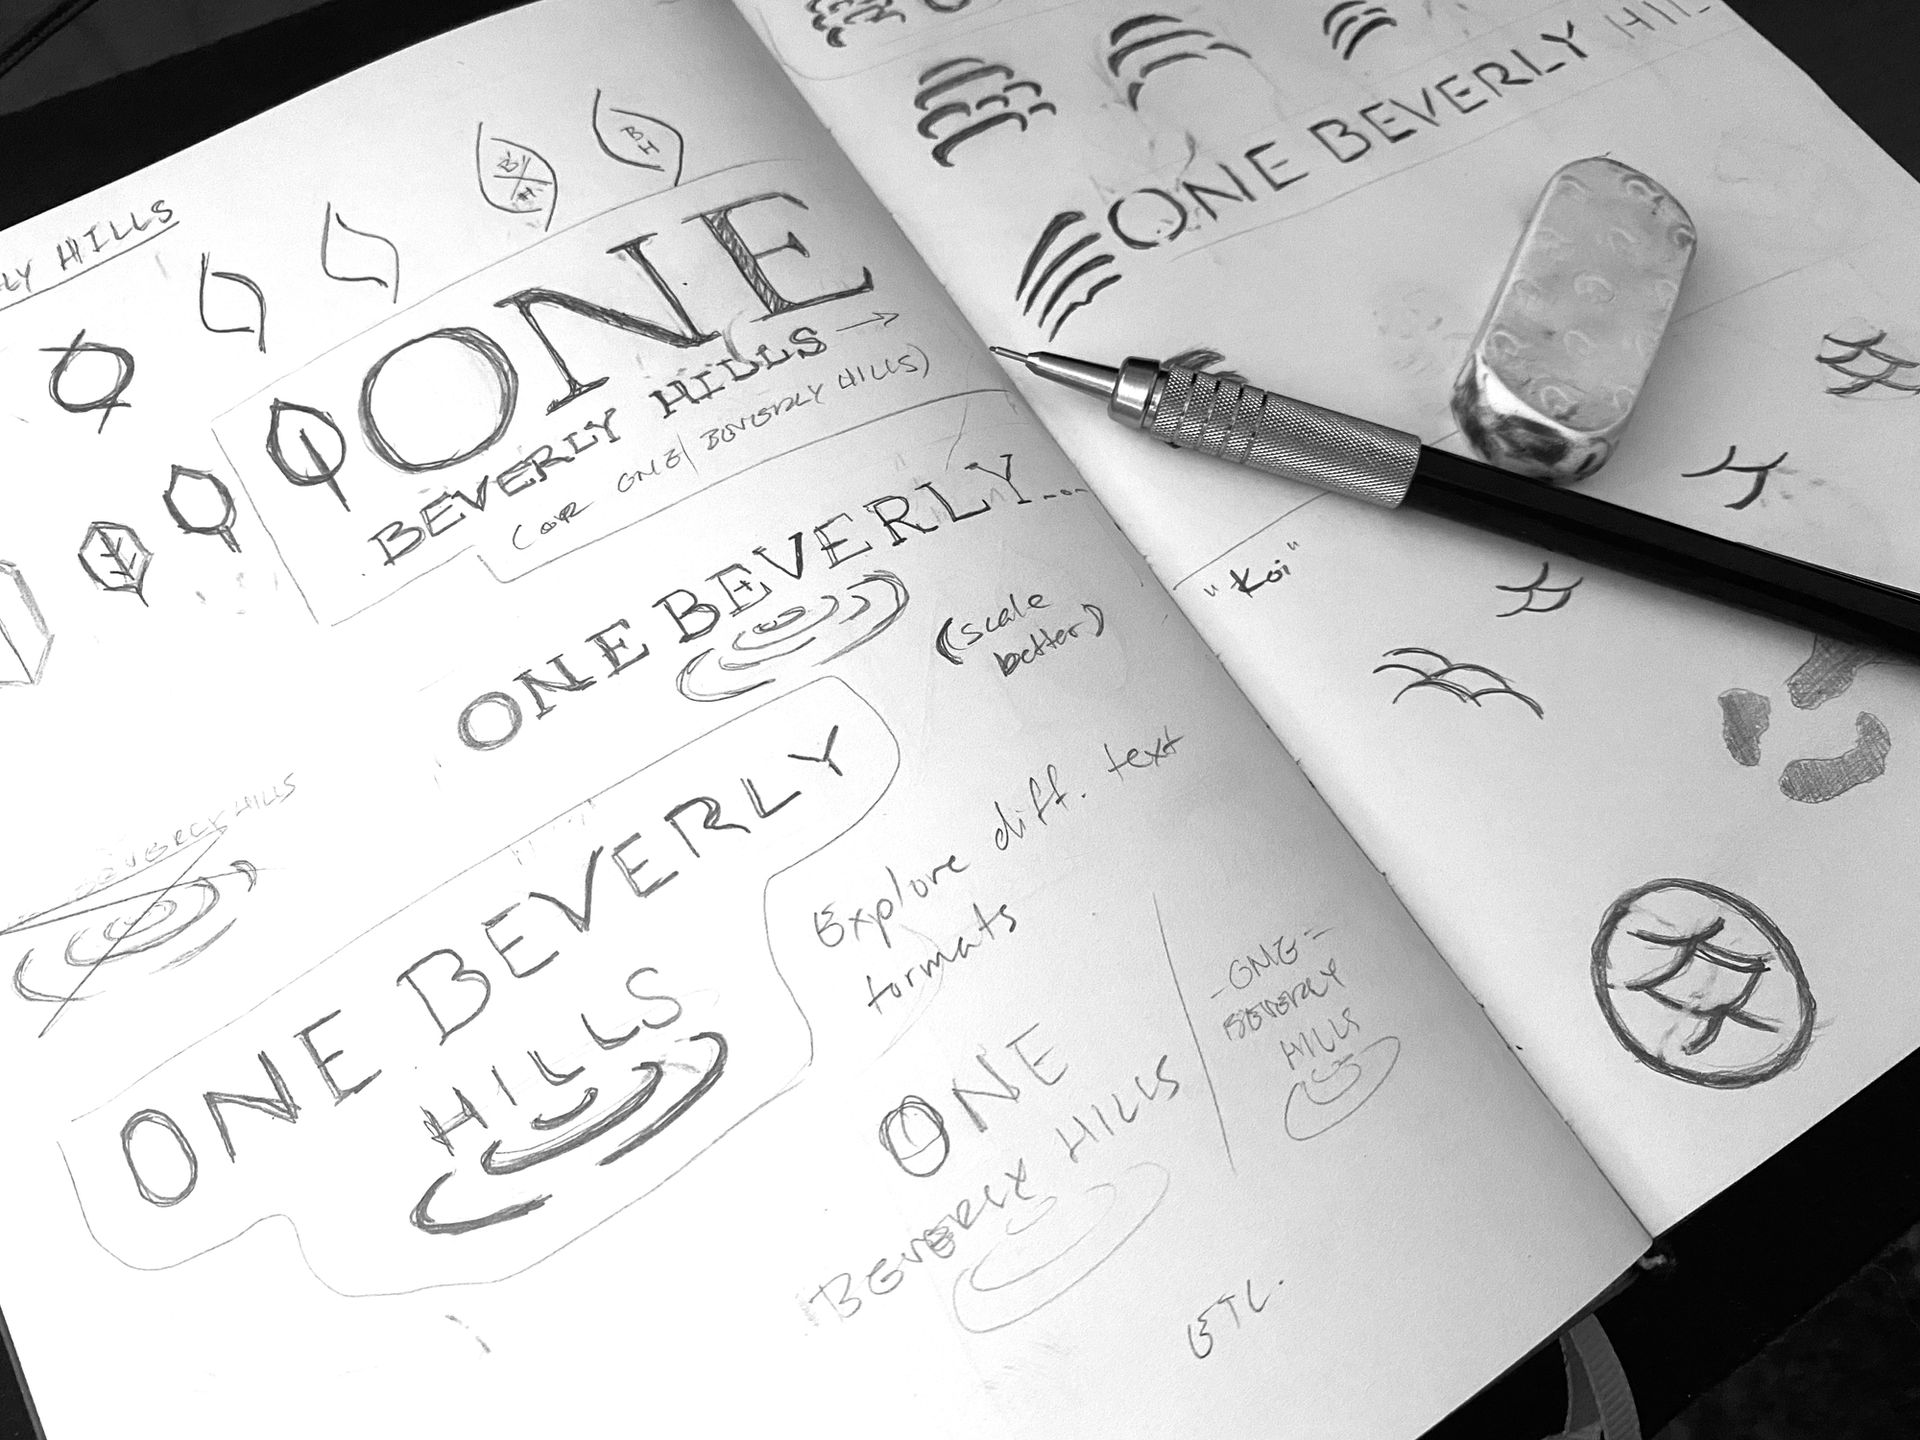 LY HILLS
B/H
BH
ONE
BEVERLY HILLS →
(or ONE/BEVERLY HILLS)
ONE BEVERLY...
(scale
better)
BEVERLY HILLS
ONE BEVERLY
HILLS
Explore diff. text
formats
ONE
BEVERLY HILLS
-ONE-
BEVERLY
HILLS
ETC.
ONE BEVERLY HILL
"Koi"